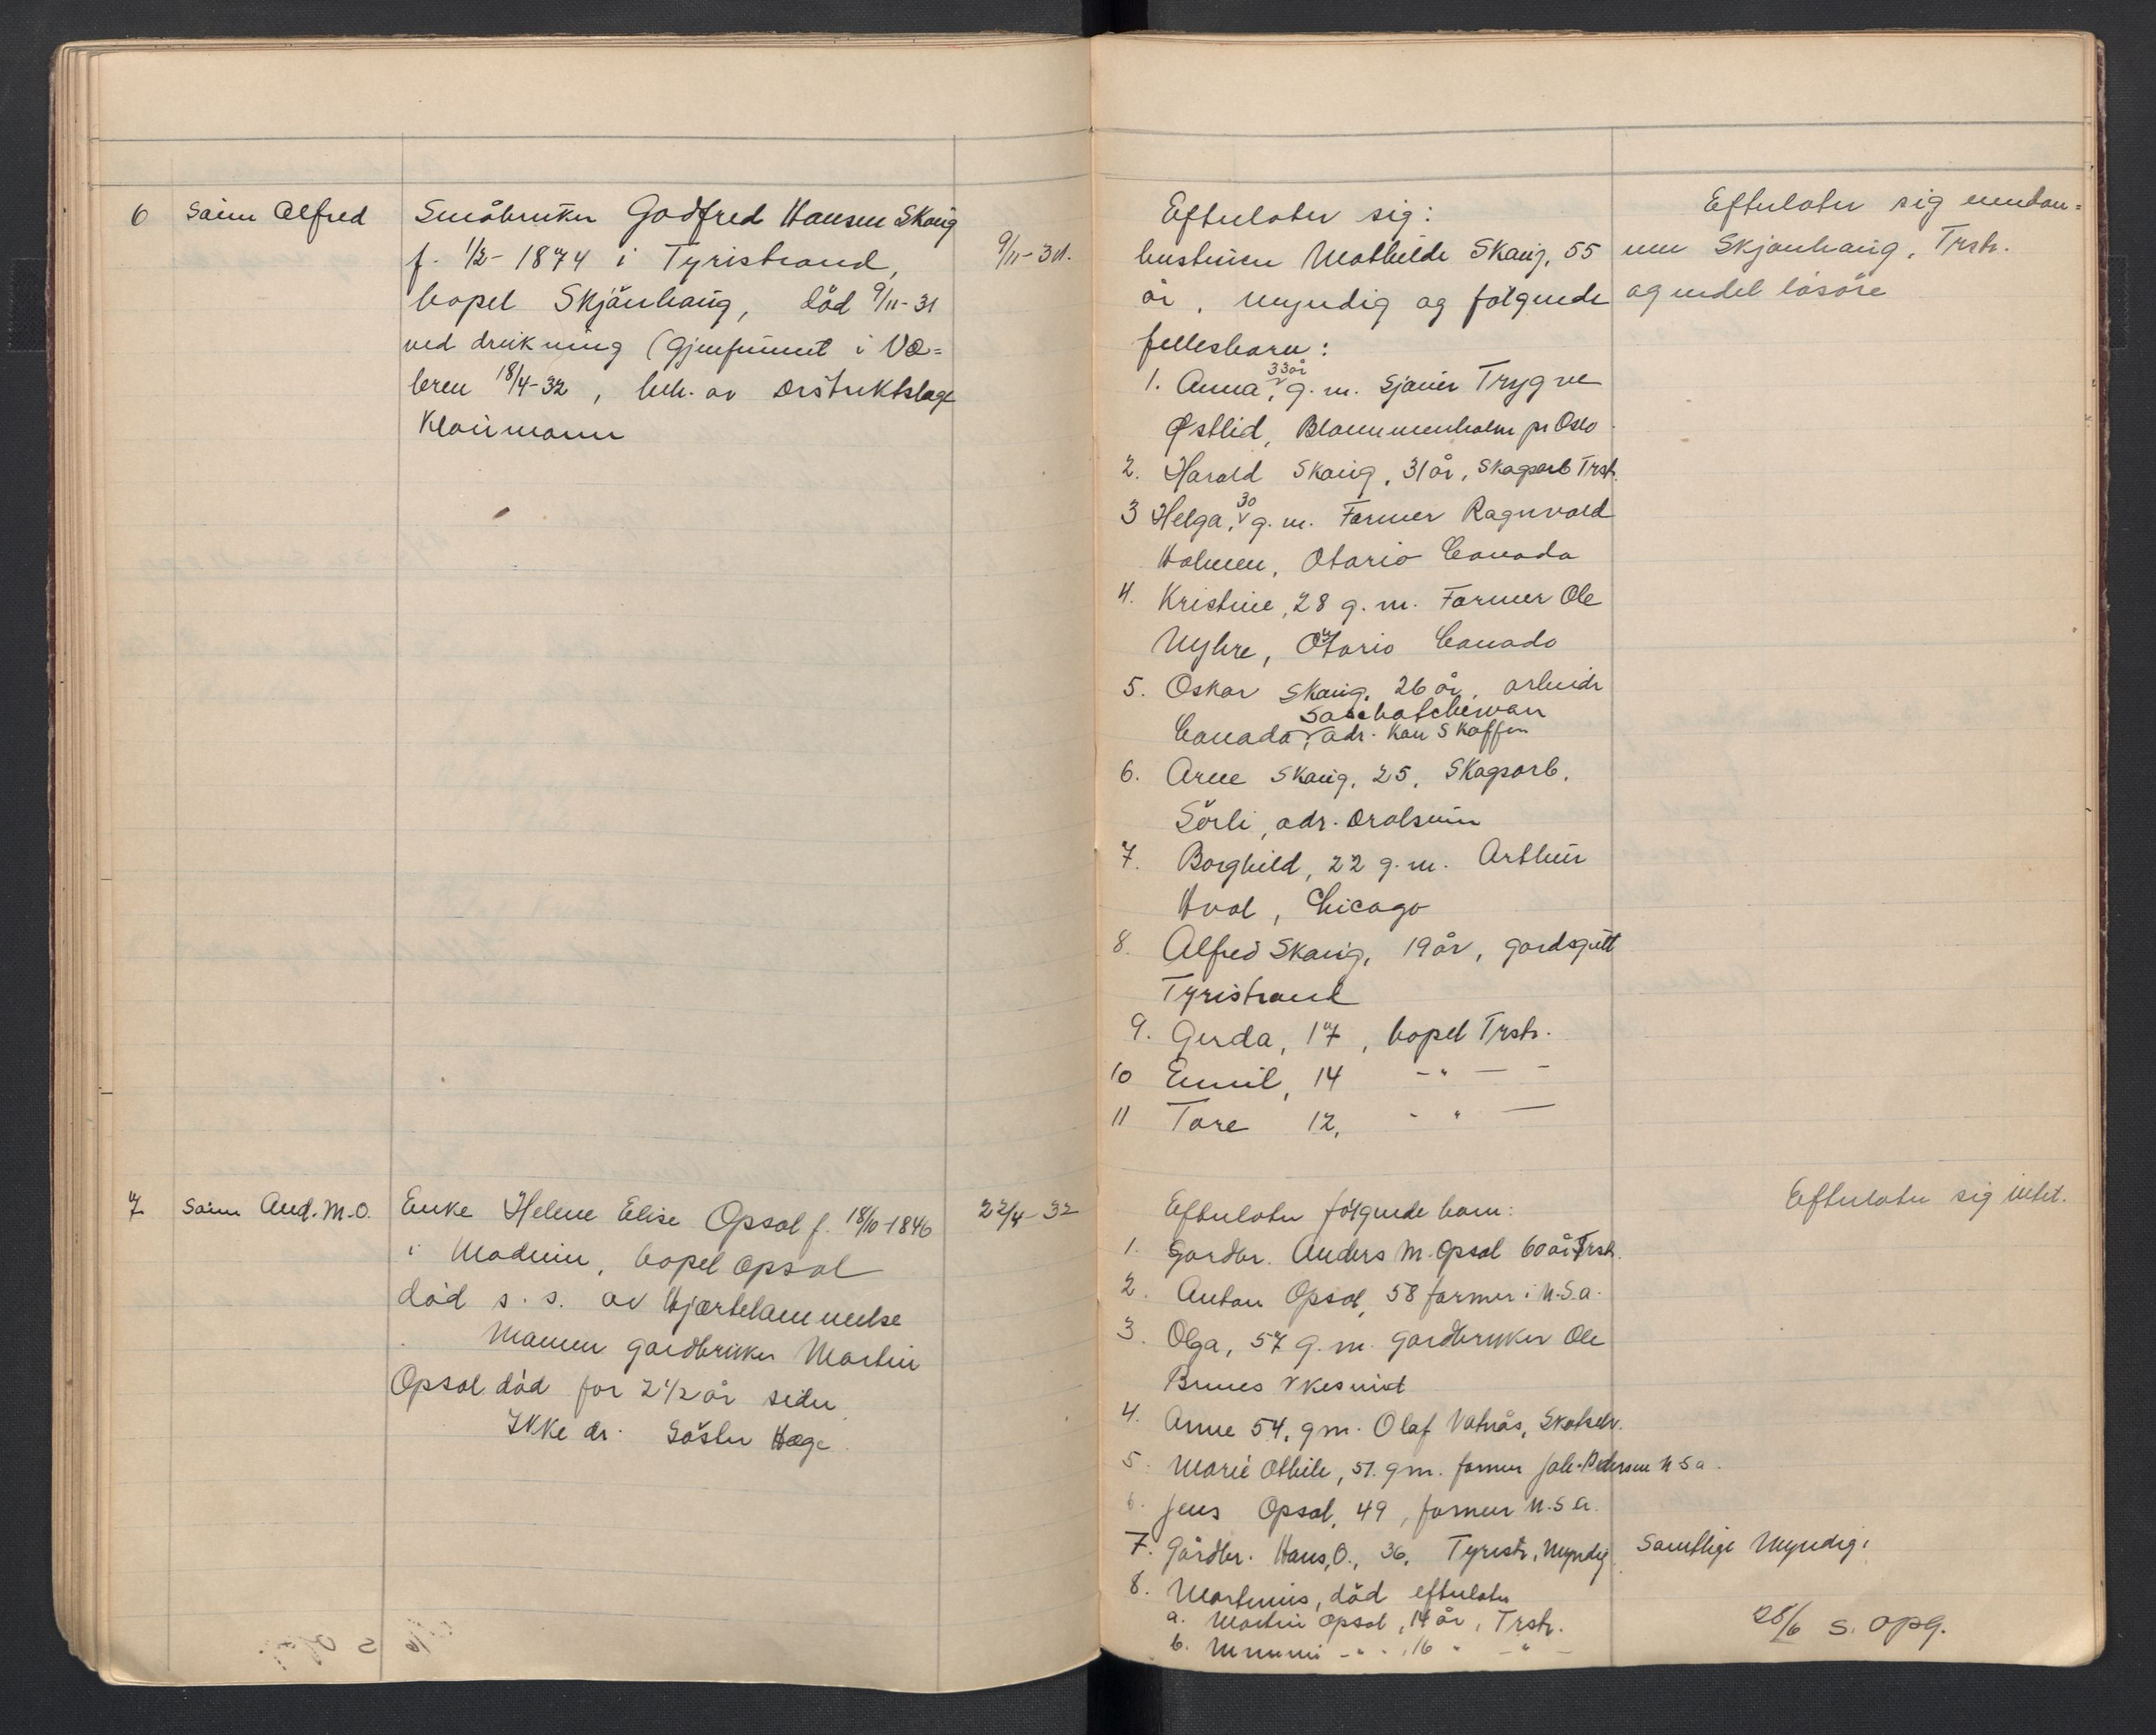 6 Sønn Alfred
Småbruker Godfred Hansen Skaug
f. 1/2-1874 i Tyristrand,
bopel Skjönhaug, död 9/11-31
ved drukning (gjenfunnet i Væ=
leren 18/4-32, beh. av Distriktslæge
Klaumann
9/11-31.
Efterlater sig:
hustruen Mathilde Skaug, 55
år, myndig og følgende
fellesbarn:
1. Anna, 33 år g. m. Sjauer Trygve
Østlid, Blommenholm pr Oslo
2. Harald Skaug, 31 år, Skogsarb Trst.
3 Helga, 30 g. m. Farmer Ragnvald
Holmen, Otario Canada
4. Kristine, 28 g. m. Farmer Ole
Myhre, Ontario Canada
5. Oskar Skaug, 26 år, arbeidr
Saschatchewan
Canada, adr. kan skaffes
6. Arne Skaug, 25, Skogsarb.
Sörli, adr.
7. Borghild, 22 g. m. Arthur
Hval, Chicago
8. Alfred Skaug, 19 år, gardsgutt
Tyristrand
9. Gerda, 17, bopel Trstr.
10 Emil, 14 - " - -
11 Tore 12, - " -
Efterlater sig eiendom=
men Skjønhaug, Trstr.
og endel løsøre
7 Sønn And. M. O.
Enke Helene Elise Opsal f. 18/10-1846
i Modum, bopel Opsal
död s. s. av Hjærtelammelse
Mannen gardbruker Martin
Opsal död for 2 1/2 år siden
Ikke dr. Söster Hege
22/4-32
Efterlater følgende barn:
1. Gardbr. Anders M. Opsal 60 år Trstr.
2. Anton Opsal, 58 farmer i U.S.a.
3. Olga, 57 g. m. gardbruker Ole
Brunes Vikesund
4. Anne 54, g m. Olaf Vatnås, Skotselv.
5. Marie Othile, 51. g m. farmer Joh. Pedersen U S a.
6. Jens Opsal, 49, farmer U.S a.
7. Gårdbr. Hans, O., 36, Tyristr, Myndig
8. Martinius, död efterlater
a. Martin Opsal, 14 år, Trstr.
b. - " - , 16 " - " -
Efterlater sig intet.
Samtlige Myndige
28/6 s. opg.